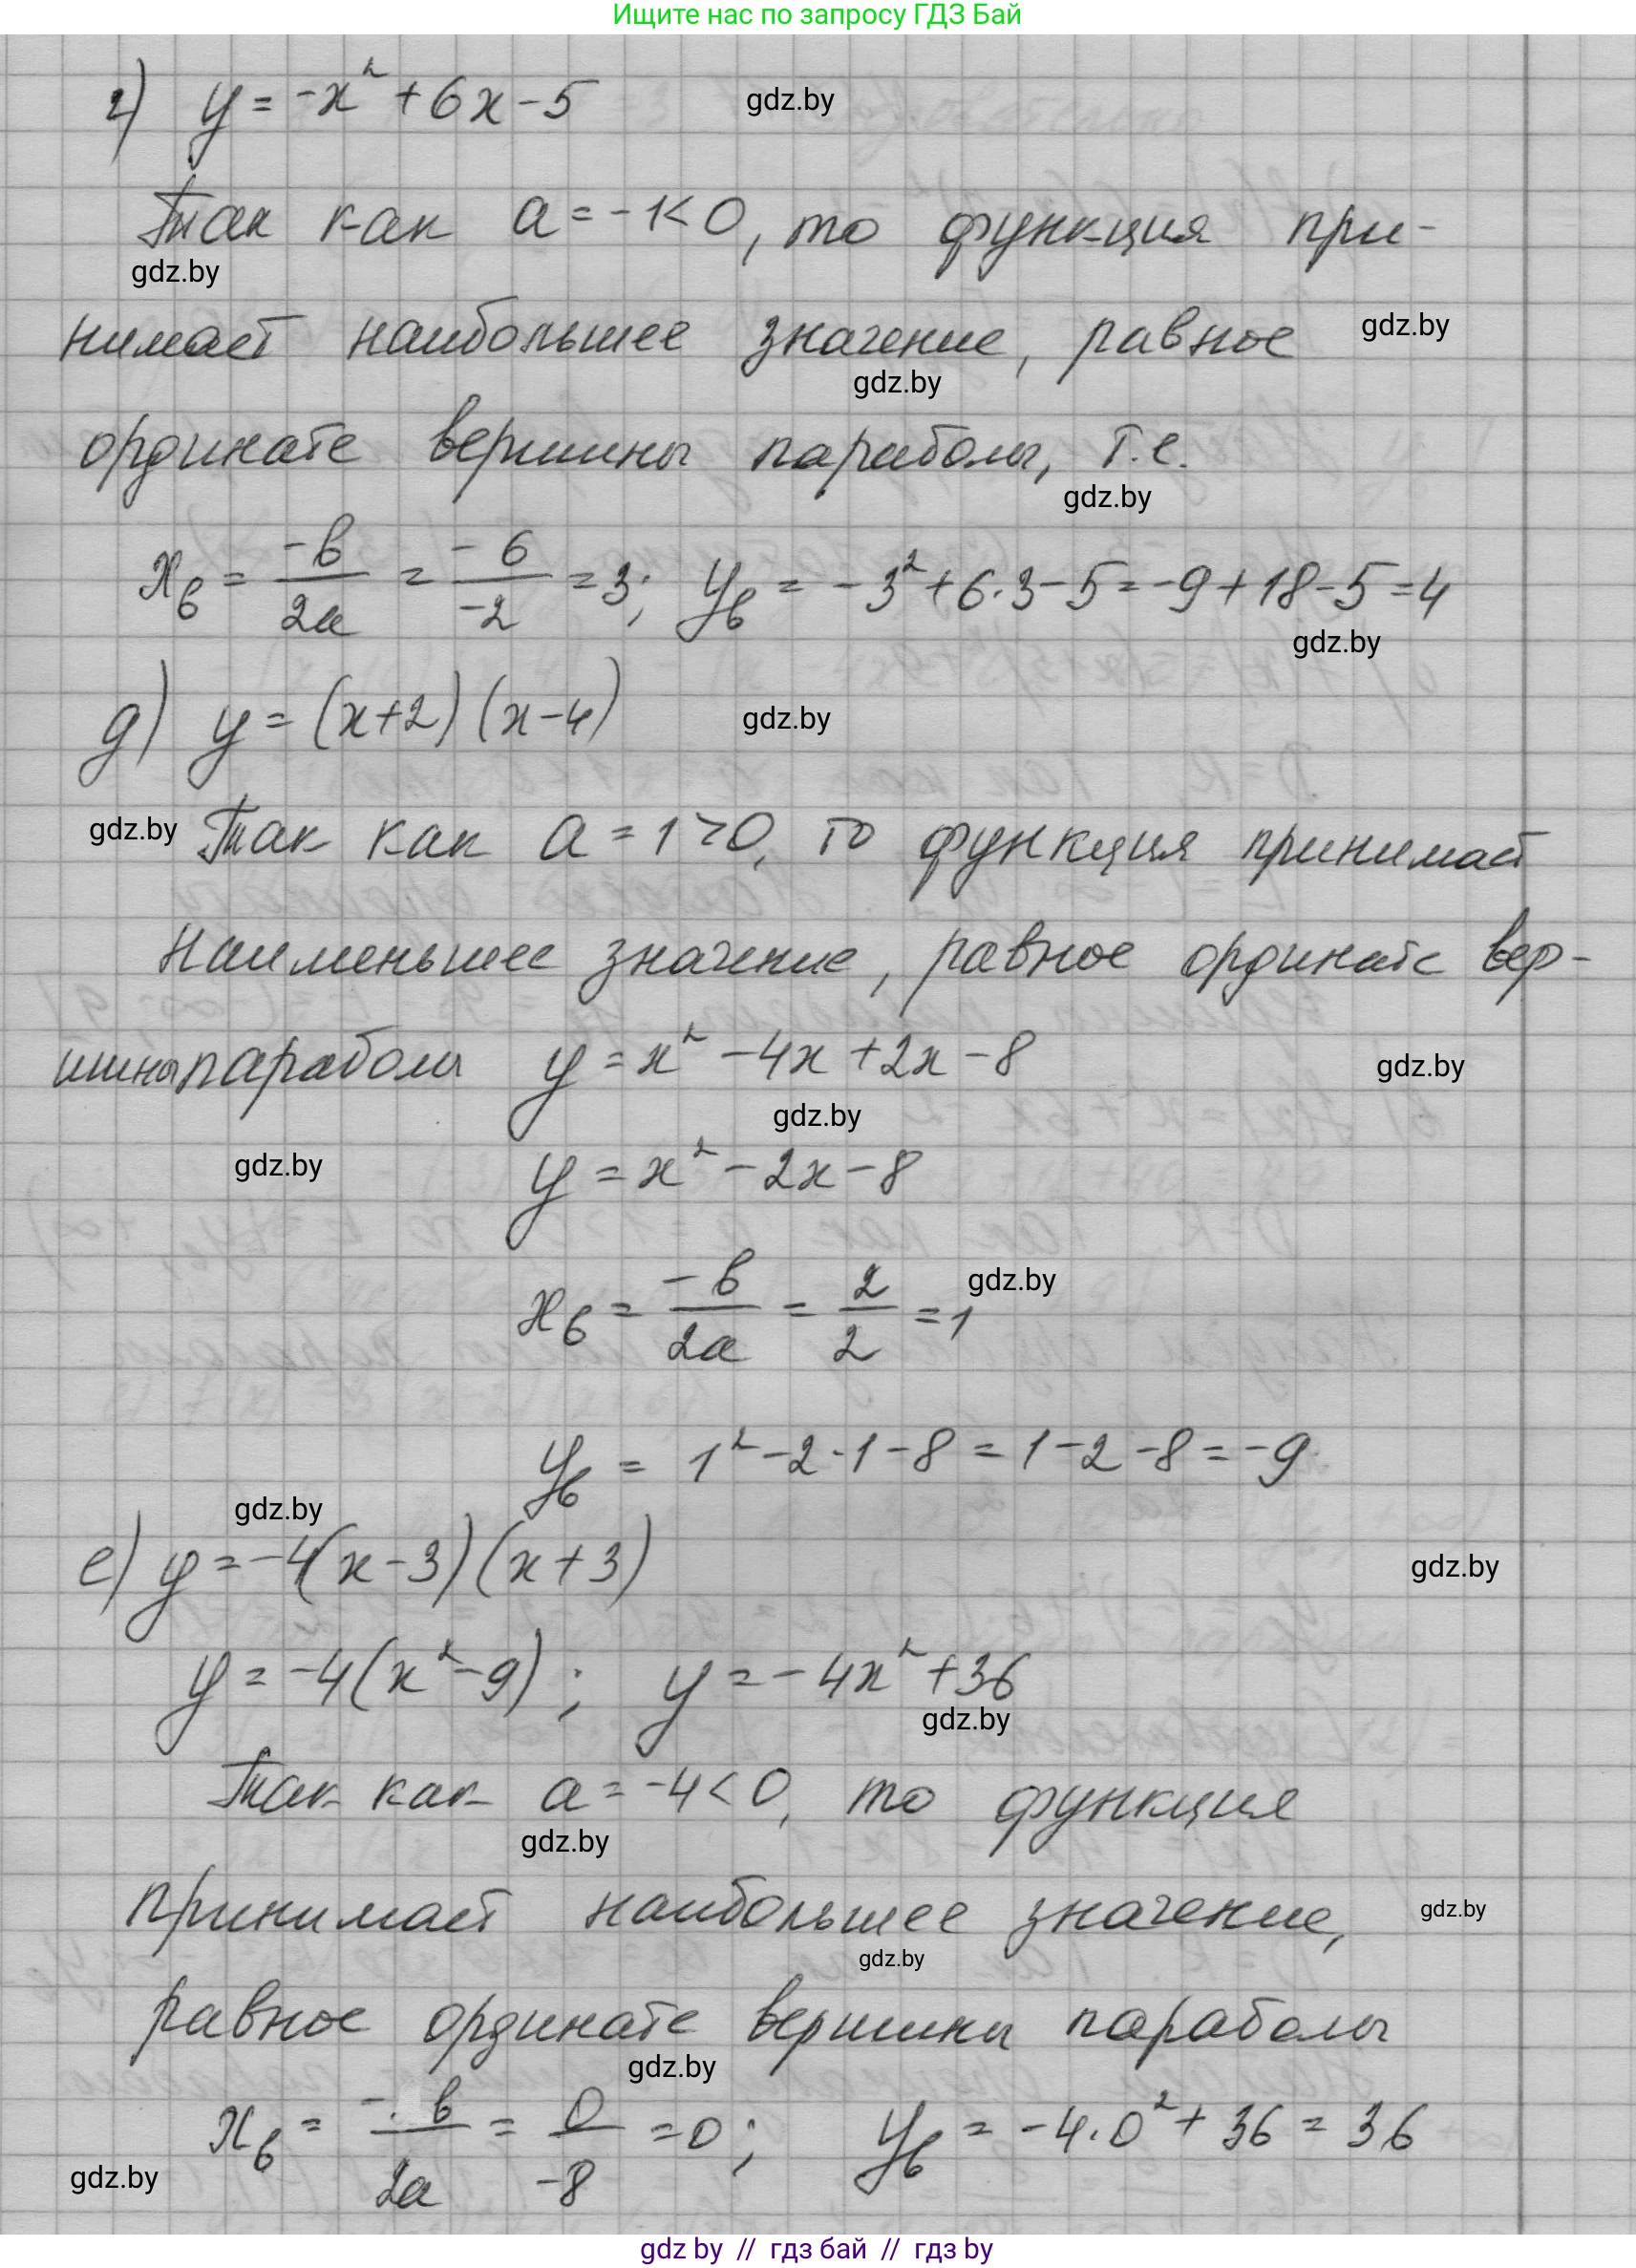 Ищите нас по запросу ГДЗ Бай
г) y = -x² + 6x - 5
gdz.by
Так как a = -1 < 0, то функция при-
gdz.by
нимает наибольшее значение, равное
gdz.by
gdz.by
ординате вершины параболы, т.е.
gdz.by
xв = -в/2a = -6/-2 = 3; yв = -3² + 6·3 - 5 = -9 + 18 - 5 = 4
gdz.by
д) y = (x+2)(x-4)
gdz.by
gdz.by
Так как a = 1 > 0, то функция принимает
наименьшее значение, равное ординате вер-
шины параболы y = x² - 4x + 2x - 8
gdz.by
gdz.by
gdz.by
y = x² - 2x - 8
xв = -в/2a = 2/2 = 1
gdz.by
yв = 1² - 2·1 - 8 = 1 - 2 - 8 = -9
gdz.by
е) y = -4(x-3)(x+3)
gdz.by
y = -4(x²-9); y = -4x² + 36
gdz.by
Так как a = -4 < 0, то функция
gdz.by
принимает наибольшее значение,
gdz.by
gdz.by
равное ординате вершины параболы
gdz.by
xв = -в/2a = 0/-8 = 0; yв = -4·0² + 36 = 36
gdz.by
gdz by // гдз бай // гдз by